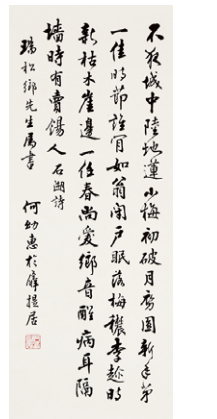 不夜城中陸地蓮小梅初破月初圓新年第
一佳時節誰肯如翁閉戶眠落梅穠李趁時
新枯木崖邊一任春尚愛鄉音醒病耳隔
墻時有賣餳人 石湖詩
瑞松鄉先生属書 何幼惠於居